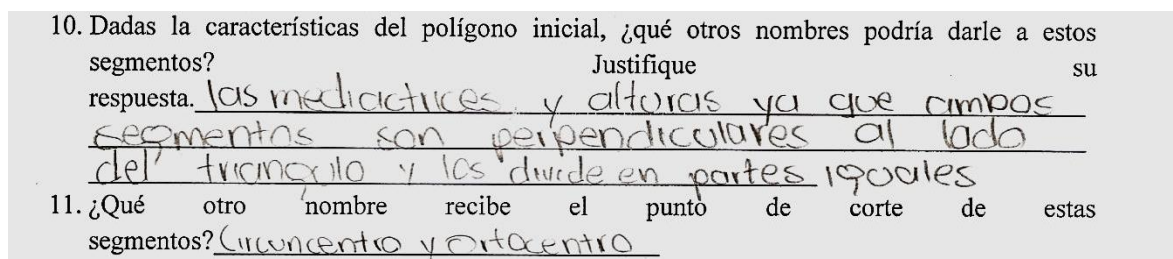 10. Dadas la características del polígono inicial, ¿qué otros nombres podría darle a estos
segmentos? Justifique su
respuesta. las mediactrices y alturas ya que ambos
segmentos son perpendiculares al lado
del triangulo y los divide en partes iguales
11. ¿Qué otro nombre recibe el punto de corte de estas
segmentos? Circuncentro y Ortocentro